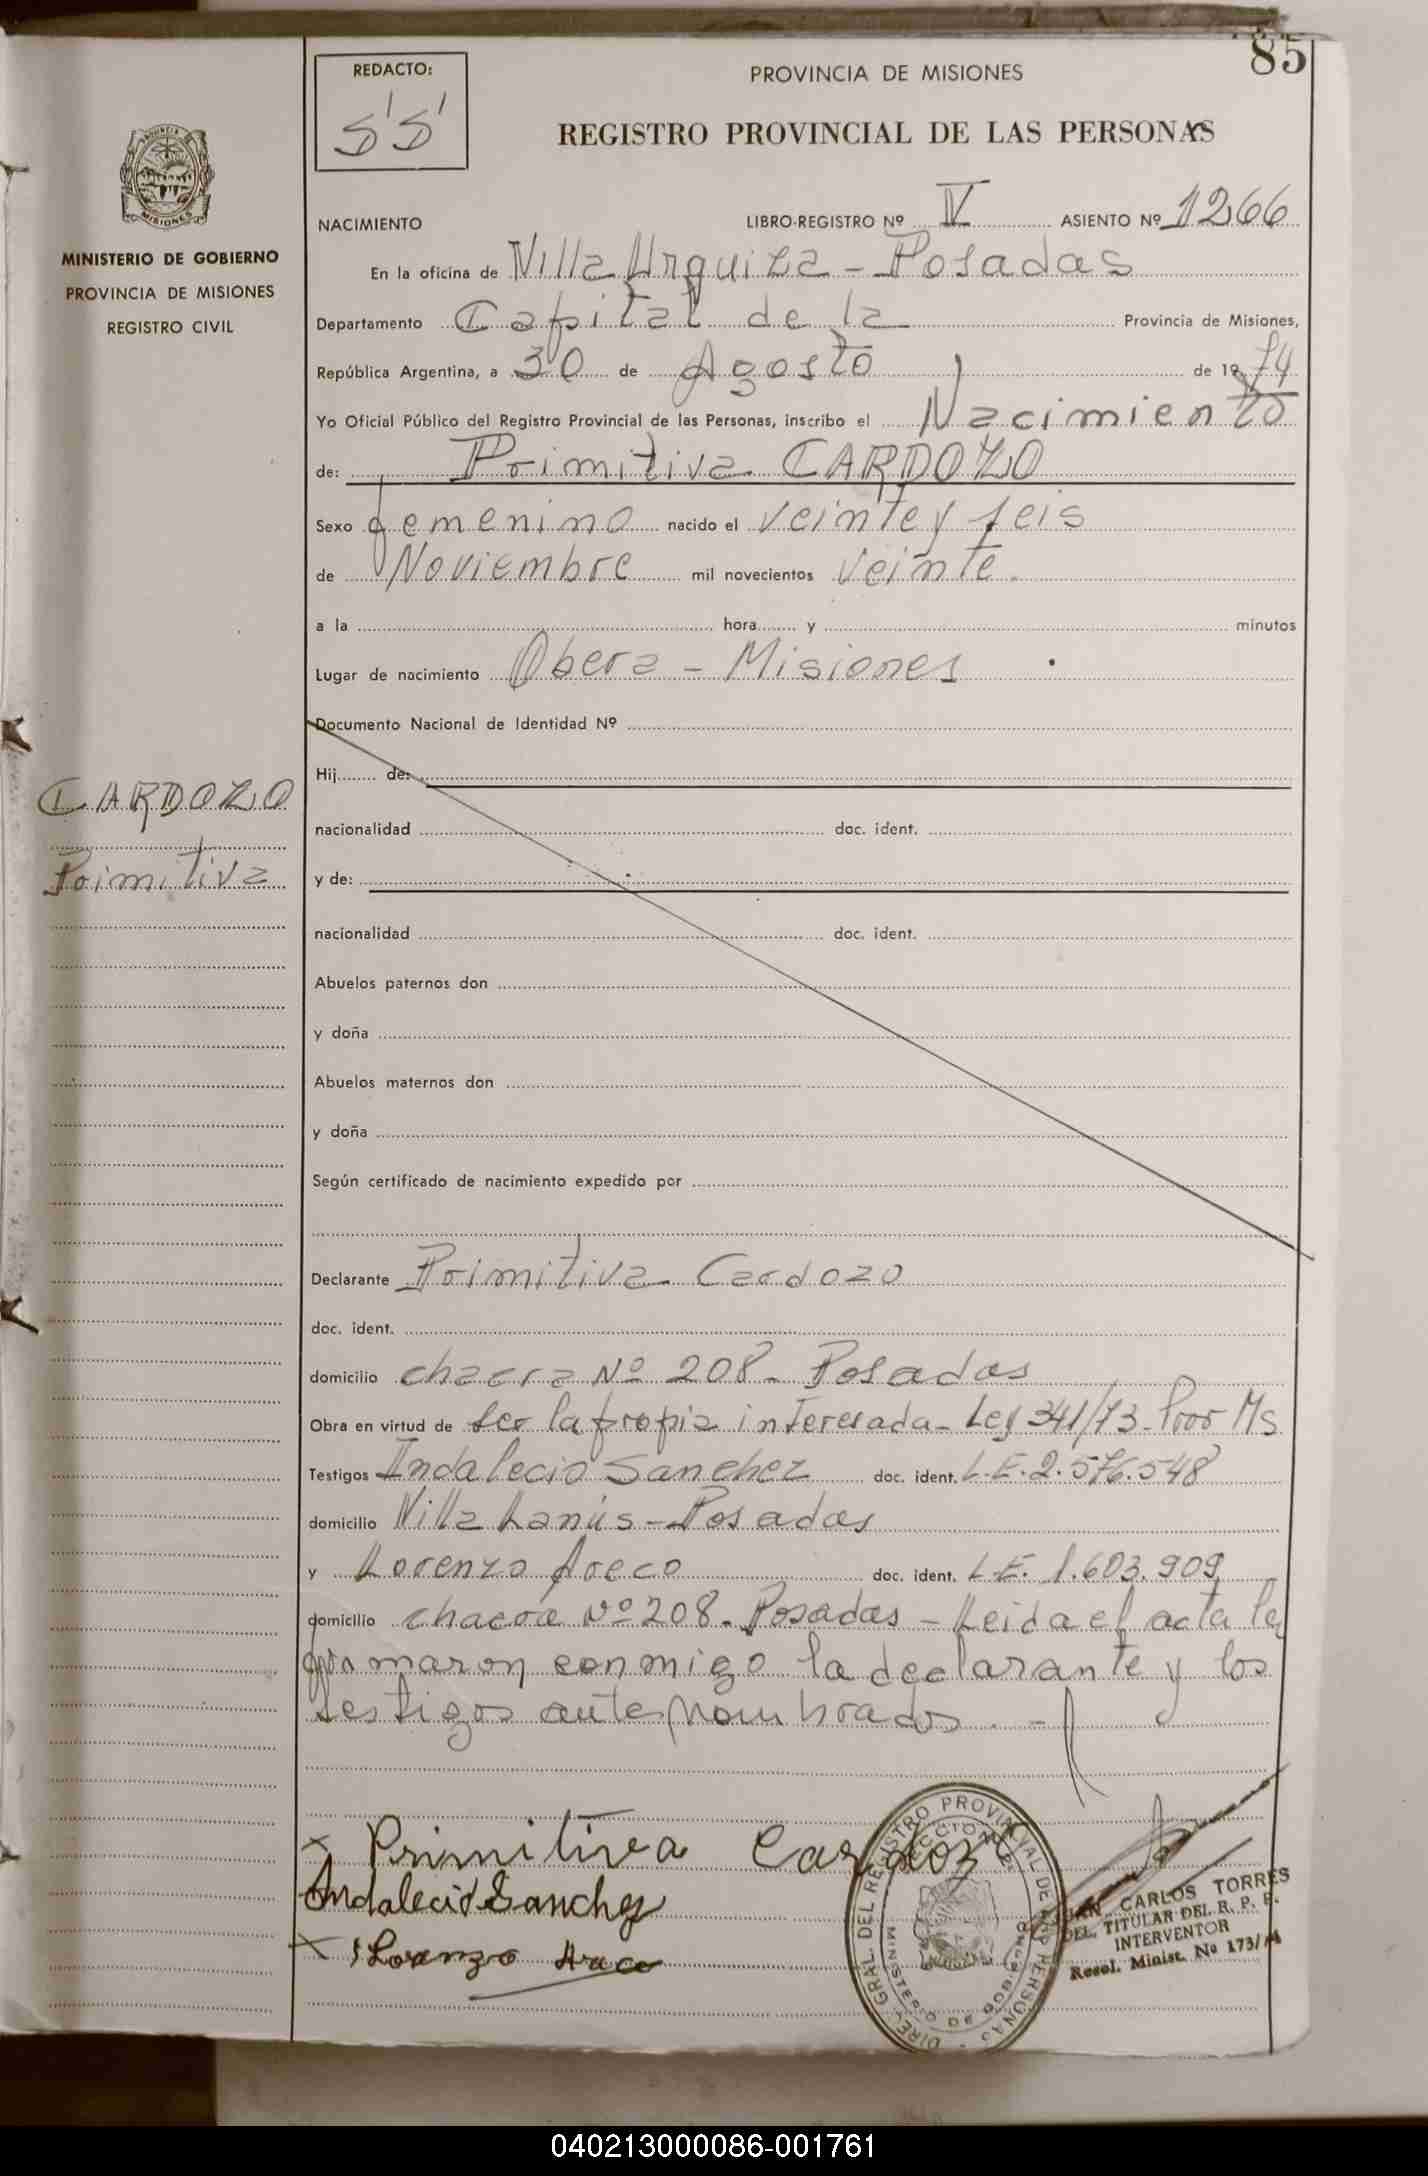 85
REDACTO:
PROVINCIA DE MISIONES
REGISTRO PROVINCIAL DE LAS PERSONAS
MISIONES
MINISTERIO DE GOBIERNO
PROVINCIA DE MISIONES
REGISTRO CIVIL
NACIMIENTO LIBRO-REGISTRO Nº IV ASIENTO Nº 1266
En la oficina de Villa Urquiza - Posadas
Departamento Capital de la Provincia de Misiones,
República Argentina, a 30 de Agosto de 1974
Yo Oficial Público del Registro Provincial de las Personas, inscribo el Nacimiento
de: Primitiva CARDOZO
Sexo femenino nacido el veinte y seis
de Noviembre mil novecientos veinte.
a la hora y minutos
Lugar de nacimiento Obera - Misiones
Documento Nacional de Identidad Nº
Hij de:
CARDOZO
Primitiva
nacionalidad doc. ident.
y de:
nacionalidad doc. ident.
Abuelos paternos don
y doña
Abuelos maternos don
y doña
Según certificado de nacimiento expedido por
Declarante Primitiva Cardozo
doc. ident.
domicilio chacra Nº 208 - Posadas
Obra en virtud de ser la propia interesada - Ley 341/73 - Pror Ms
Testigos Indalecio Sanchez doc. ident. L.E. 2.576.548
domicilio Villa Lanús - Posadas
y Lorenzo Areco doc. ident. L.E. 1.603.909
domicilio chacra Nº 208 - Posadas - Leida el acta la
firmaron conmigo la declarante y los
testigos antes nombrados. -
x Primitiva Cardozo
Indalecio Sanchez
x Lorenzo Areco
DIREC. GRAL. DEL REGISTRO PROVINCIAL DE LAS PERSONAS
MINISTERIO DE GOBIERNO
JUAN CARLOS TORRES
DEL. TITULAR DEL R. P. P.
INTERVENTOR
Resol. Minist. Nº 173/74
040213000086-001761